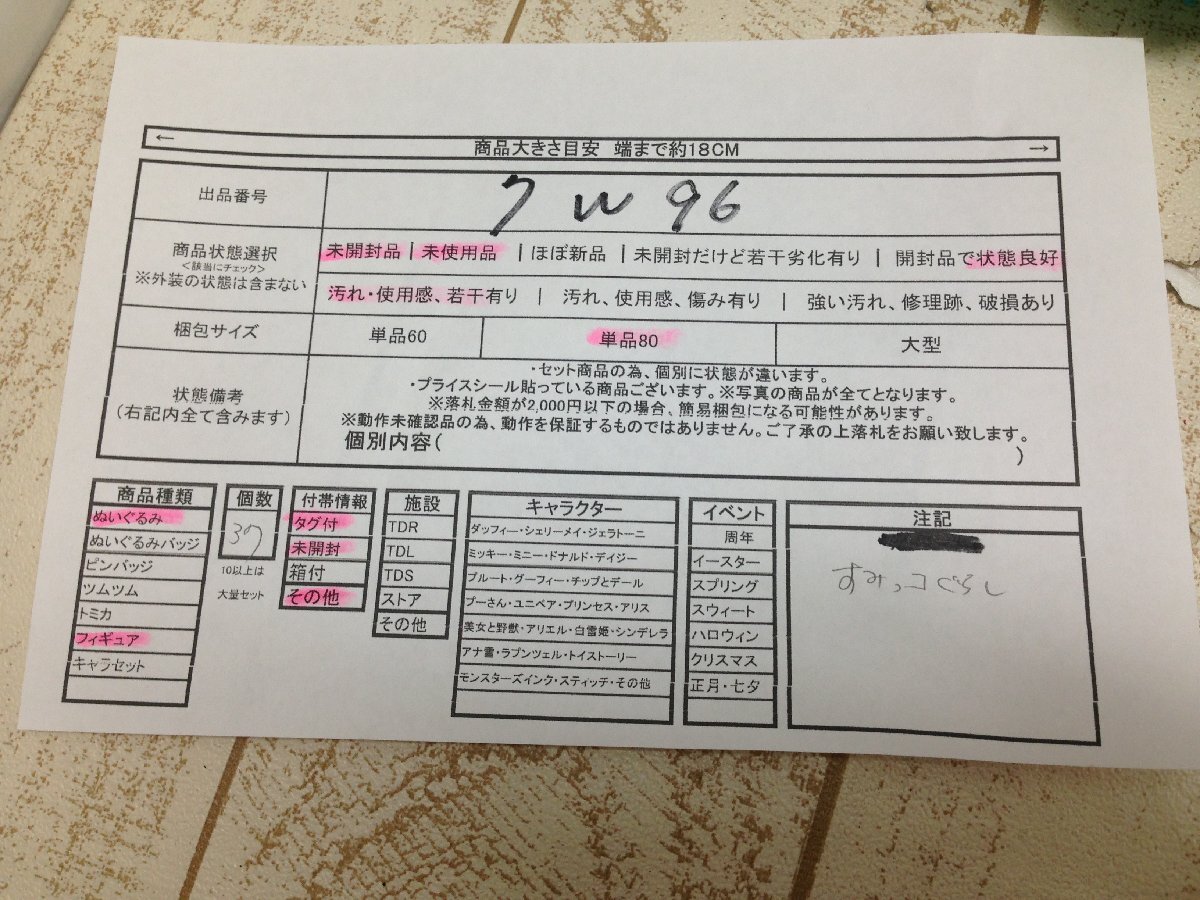 ← 商品大きさ目安 端まで約18CM →
出品番号
7W96
商品状態選択
<該当にチェック>
※外装の状態は含まない
未開封品 | 未使用品 | ほぼ新品 | 未開封だけど若干劣化有り | 開封品で状態良好
汚れ・使用感、若干有り | 汚れ、使用感、傷み有り | 強い汚れ、修理跡、破損あり
梱包サイズ 単品60 単品80 大型
状態備考
(右記内全て含みます)
・セット商品の為、個別に状態が違います。
・プライスシール貼っている商品ございます。※写真の商品が全てとなります。
※落札金額が2,000円以下の場合、簡易梱包になる可能性があります。
※動作未確認品の為、動作を保証するものではありません。ご了承の上落札をお願い致します。
個別内容( )
商品種類
ぬいぐるみ
ぬいぐるみバッジ
ピンバッジ
ツムツム
トミカ
フィギュア
キャラセット
個数
37
10以上は
大量セット
付帯情報
タグ付
未開封
箱付
その他
施設
TDR
TDL
TDS
ストア
その他
キャラクター
ダッフィー・シェリーメイ・ジェラトーニ
ミッキー・ミニー・ドナルド・デイジー
プルート・グーフィー・チップとデール
プーさん・ユニベア・プリンセス・アリス
美女と野獣・アリエル・白雪姫・シンデレラ
アナ雪・ラプンツェル・トイストーリー
モンスターズインク・スティッチ・その他
イベント
周年
イースター
スプリング
スウィート
ハロウィン
クリスマス
正月・七夕
注記
すみっコぐらし